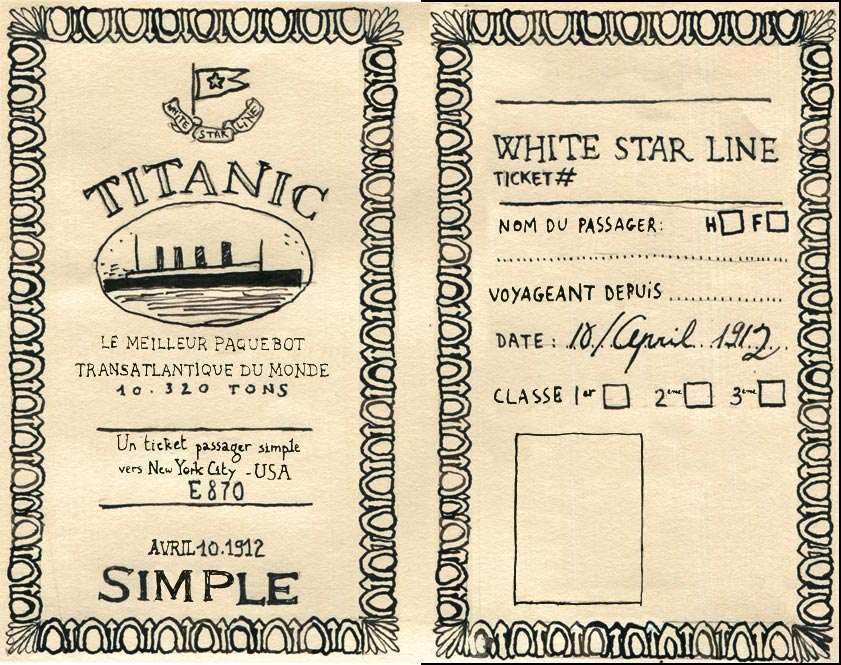 WHITE STAR LINE
TITANIC
LE MEILLEUR PAQUEBOT
TRANSATLANTIQUE DU MONDE
10.320 TONS
Un ticket passager simple
vers New York City - USA
E870
AVRIL 10.1912
SIMPLE
WHITE STAR LINE
TICKET#
NOM DU PASSAGER: H F
VOYAGEANT DEPUIS
DATE: 10/April 1912
CLASSE 1er 2eme 3eme